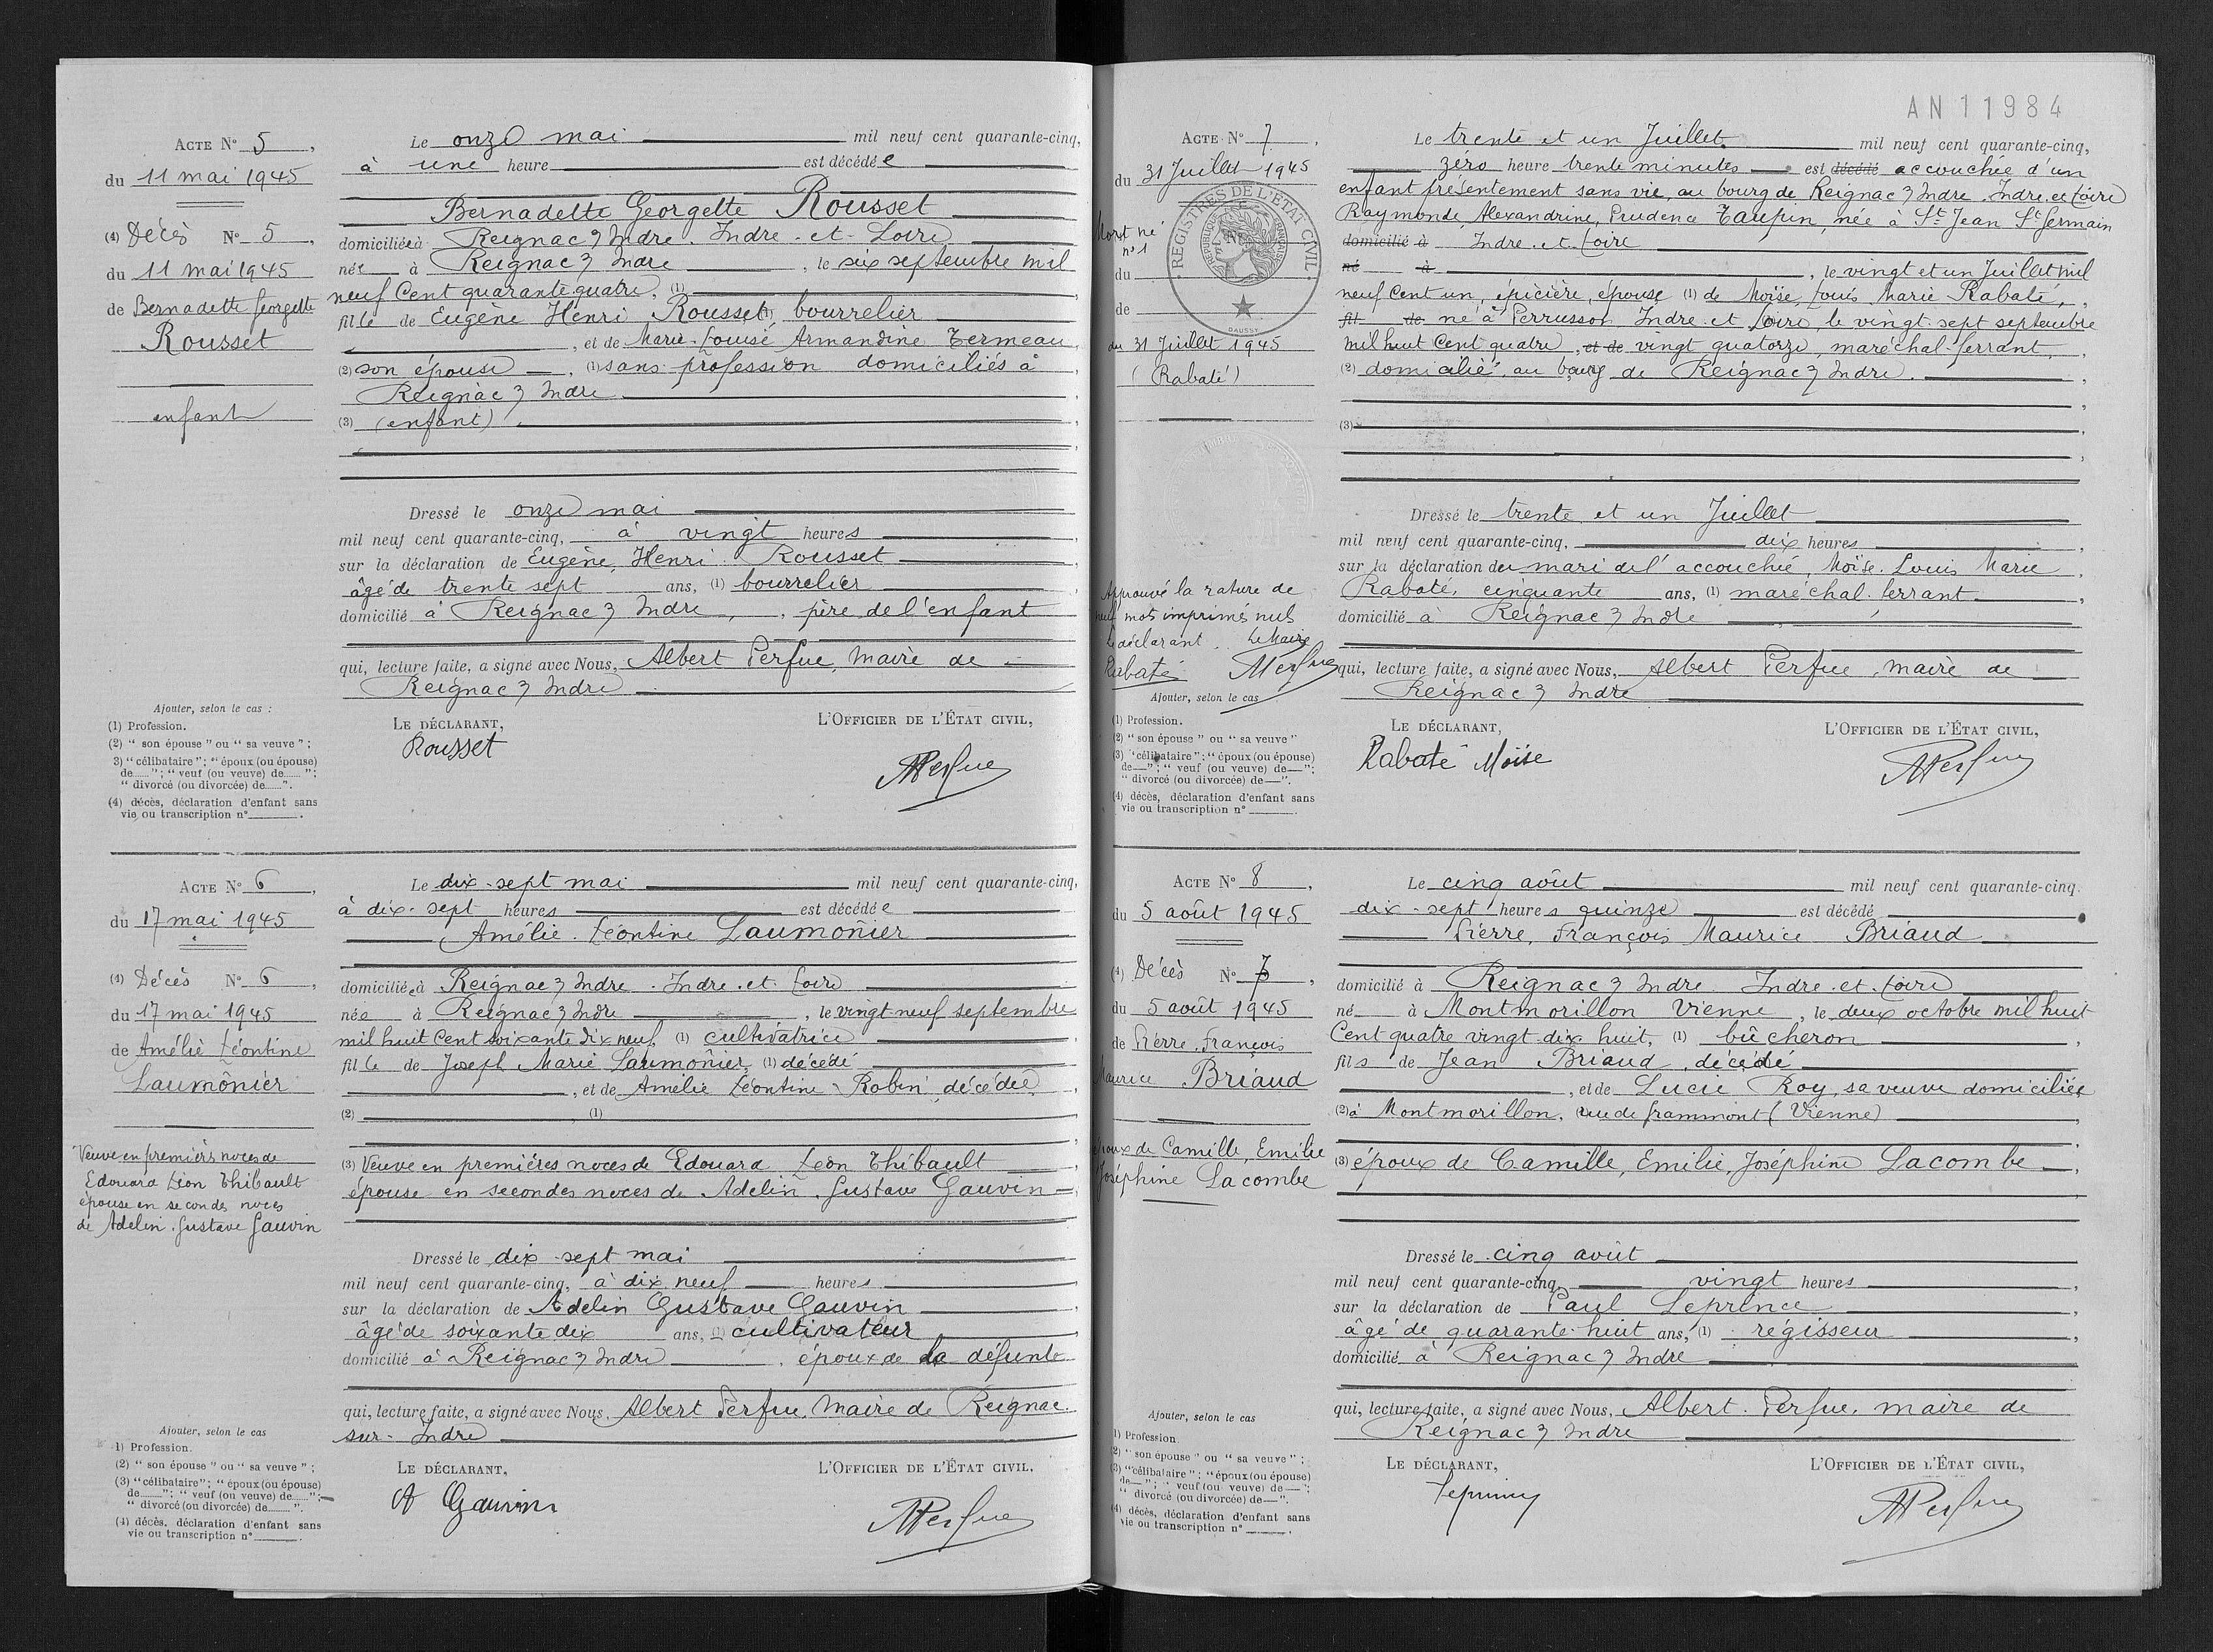 ACTE N° 5,
du 11 mai 1945
(4) Décès N° 5,
du 11 mai 1945
de Bernadette Georgette
Rousset
enfant
Le onze mai mil neuf cent quarante-cinq,
à une heure est décédée
Bernadette Georgette Rousset
domiciliée à Reignac s/ Indre. Indre-et-Loire
née à Reignac s/ Indre, le six septembre mil
neuf Cent quarante quatre, (1)
fille de Eugène Henri Rousset (1) bourrelier
, et de Marie-Louise Armandine Termeau,
(2) son épouse, (1) sans profession domiciliés à
Reignac s/ Indre
(3) (enfant).
Dressé le onze mai
mil neuf cent quarante-cinq, à vingt heures
sur la déclaration de Eugène, Henri Rousset
âgé de trente sept ans, (1) bourrelier
domicilié à Reignac s/ Indre, père de l'enfant
qui, lecture faite, a signé avec Nous, Albert Perfue, Maire de
Reignac s/ Indre
LE DÉCLARANT,
L'OFFICIER DE L'ÉTAT CIVIL,
Rousset
APerfue
Ajouter, selon le cas :
(1) Profession.
(2) " son épouse " ou " sa veuve " ;
3) " célibataire " ; " époux (ou épouse)
de...... " ; " veuf (ou veuve) de...... " ;
" divorcé (ou divorcée) de...... ".
(4) décès, déclaration d'enfant sans
vie ou transcription n° .
ACTE N° 6,
du 17 mai 1945
(4) Décès N° 6,
du 17 mai 1945
de Amélie Léontine
Laumônier
Veuve en premières noces de
Edouard Léon Thibault
épouse en secondes noces
de Adelin. Gustave Gauvin
Le dix-sept mai mil neuf cent quarante-cinq,
à dix-sept heures est décédée
Amélie. Léontine Laumônier
domiciliée à Reignac s/ Indre. Indre.et.Loire
née à Reignac s/ Indre, le vingt-neuf septembre
mil huit Cent soixante dix neuf, (1) cultivatrice
fille de Joseph Marie Laumônier, (1) décédé
, et de Amélie Léontine Robin, décédée,
(2) (1)
(3) Veuve en premières noces de Edouard Léon Thibault
épouse en secondes noces de Adelin. Gustave Gauvin
Dressé le dix-sept mai
mil neuf cent quarante-cinq, à dix neuf heures
sur la déclaration de Adelin Gustave Gauvin
âgé de soixante dix ans, (1) cultivateur
domicilié à Reignac s/ Indre, époux de la défunte
qui, lecture faite, a signé avec Nous, Albert Perfue, Maire de Reignac
sur-Indre
LE DÉCLARANT,
L'OFFICIER DE L'ÉTAT CIVIL.
A Gauvin
APerfue
Ajouter, selon le cas
1) Profession.
(2) " son épouse " ou " sa veuve " ;
(3) " célibataire " ; " époux (ou épouse)
de...... " ; " veuf (ou veuve) de...... " ;
" divorcé (ou divorcée) de...... ".
(4) décès, déclaration d'enfant sans
vie ou transcription n° .
AN 11984
ACTE N° 7,
du 31 Juillet 1945
REGISTRES DE L'ETAT CIVIL
REPUBLIQUE FRANÇAISE
DAUSSY
Mort né
n° 1
du
de
du 31 Juillet 1945
(Rabaté)
Approuvé la rature de
neuf mots imprimés nuls
Le déclarant. Le Maire
Rabaté APerfue
Le trente et un Juillet mil neuf cent quarante-cinq,
zéro heure trente minutes est décédé accouchée d'un
enfant présentement sans vie, au bourg de Reignac s/ Indre. Indre.et.Loire
Raymonde, Alexandrine, Prudence Taupin, née à St Jean St Germain
domicilié à Indre.et.Loire
né à , le vingt et un Juillet mil
neuf Cent un, épicière, épouse (1) de Moïse, Louis Marie Rabaté,
fil de né à Perrusson Indre-et-Loire, le vingt-sept septembre
mil huit Cent quatre, et de vingt quatorze, maréchal-ferrant,
(2) domicilié au bourg de Reignac s/ Indre.
(3)
Dressé le trente et un Juillet
mil neuf cent quarante-cinq, dix heures
sur la déclaration du mari de l'accouchée, Moïse. Louis Marie
Rabaté, cinquante ans, (1) maréchal-ferrant
domicilié à Reignac s/ Indre
qui, lecture faite, a signé avec Nous, Albert Perfue, maire de
Reignac s/ Indre
LE DÉCLARANT,
L'OFFICIER DE L'ÉTAT CIVIL,
Rabaté Moïse
APerfue
Ajouter, selon le cas
(1) Profession.
(2) " son épouse " ou " sa veuve "
(3) " célibataire " ; " époux (ou épouse)
de— " ; " veuf (ou veuve) de— " ;
" divorcé (ou divorcée) de— ".
(4) décès, déclaration d'enfant sans
vie ou transcription n° .
ACTE N° 8,
du 5 août 1945
(4) Décès N° 7,
du 5 août 1945
de Pierre, François
Maurice Briaud
époux de Camille, Emilie
Joséphine Lacombe
Le cinq août mil neuf cent quarante-cinq.
dix-sept heures quinze est décédé
Pierre, François Maurice Briaud
domicilié à Reignac s/ Indre. Indre.et.Loire
né à Montmorillon Vienne, le deux octobre mil huit
Cent quatre vingt dix huit, (1) bûcheron,
fils de Jean Briaud, décédé
, et de Lucie Roy, sa veuve domiciliée
(2) à Montmorillon, rue de Grammont (Vienne)
(3) époux de Camille, Emilie, Joséphine Lacombe,
Dressé le cinq août
mil neuf cent quarante-cinq vingt heures
sur la déclaration de Paul Leprince
âgé de quarante-huit ans, (1) régisseur
domicilié à Reignac s/ Indre
qui, lecture faite, a signé avec Nous, Albert Perfue, maire de
Reignac s/ Indre
LE DÉCLARANT,
L'OFFICIER DE L'ÉTAT CIVIL,
Leprince
APerfue
Ajouter, selon le cas
1) Profession
2) " son épouse " ou " sa veuve " ;
(3) " célibataire " ; " époux (ou épouse)
de— " ; " veuf (ou veuve) de— " ;
" divorcé (ou divorcée) de— ".
(4) décès, déclaration d'enfant sans
vie ou transcription n° .